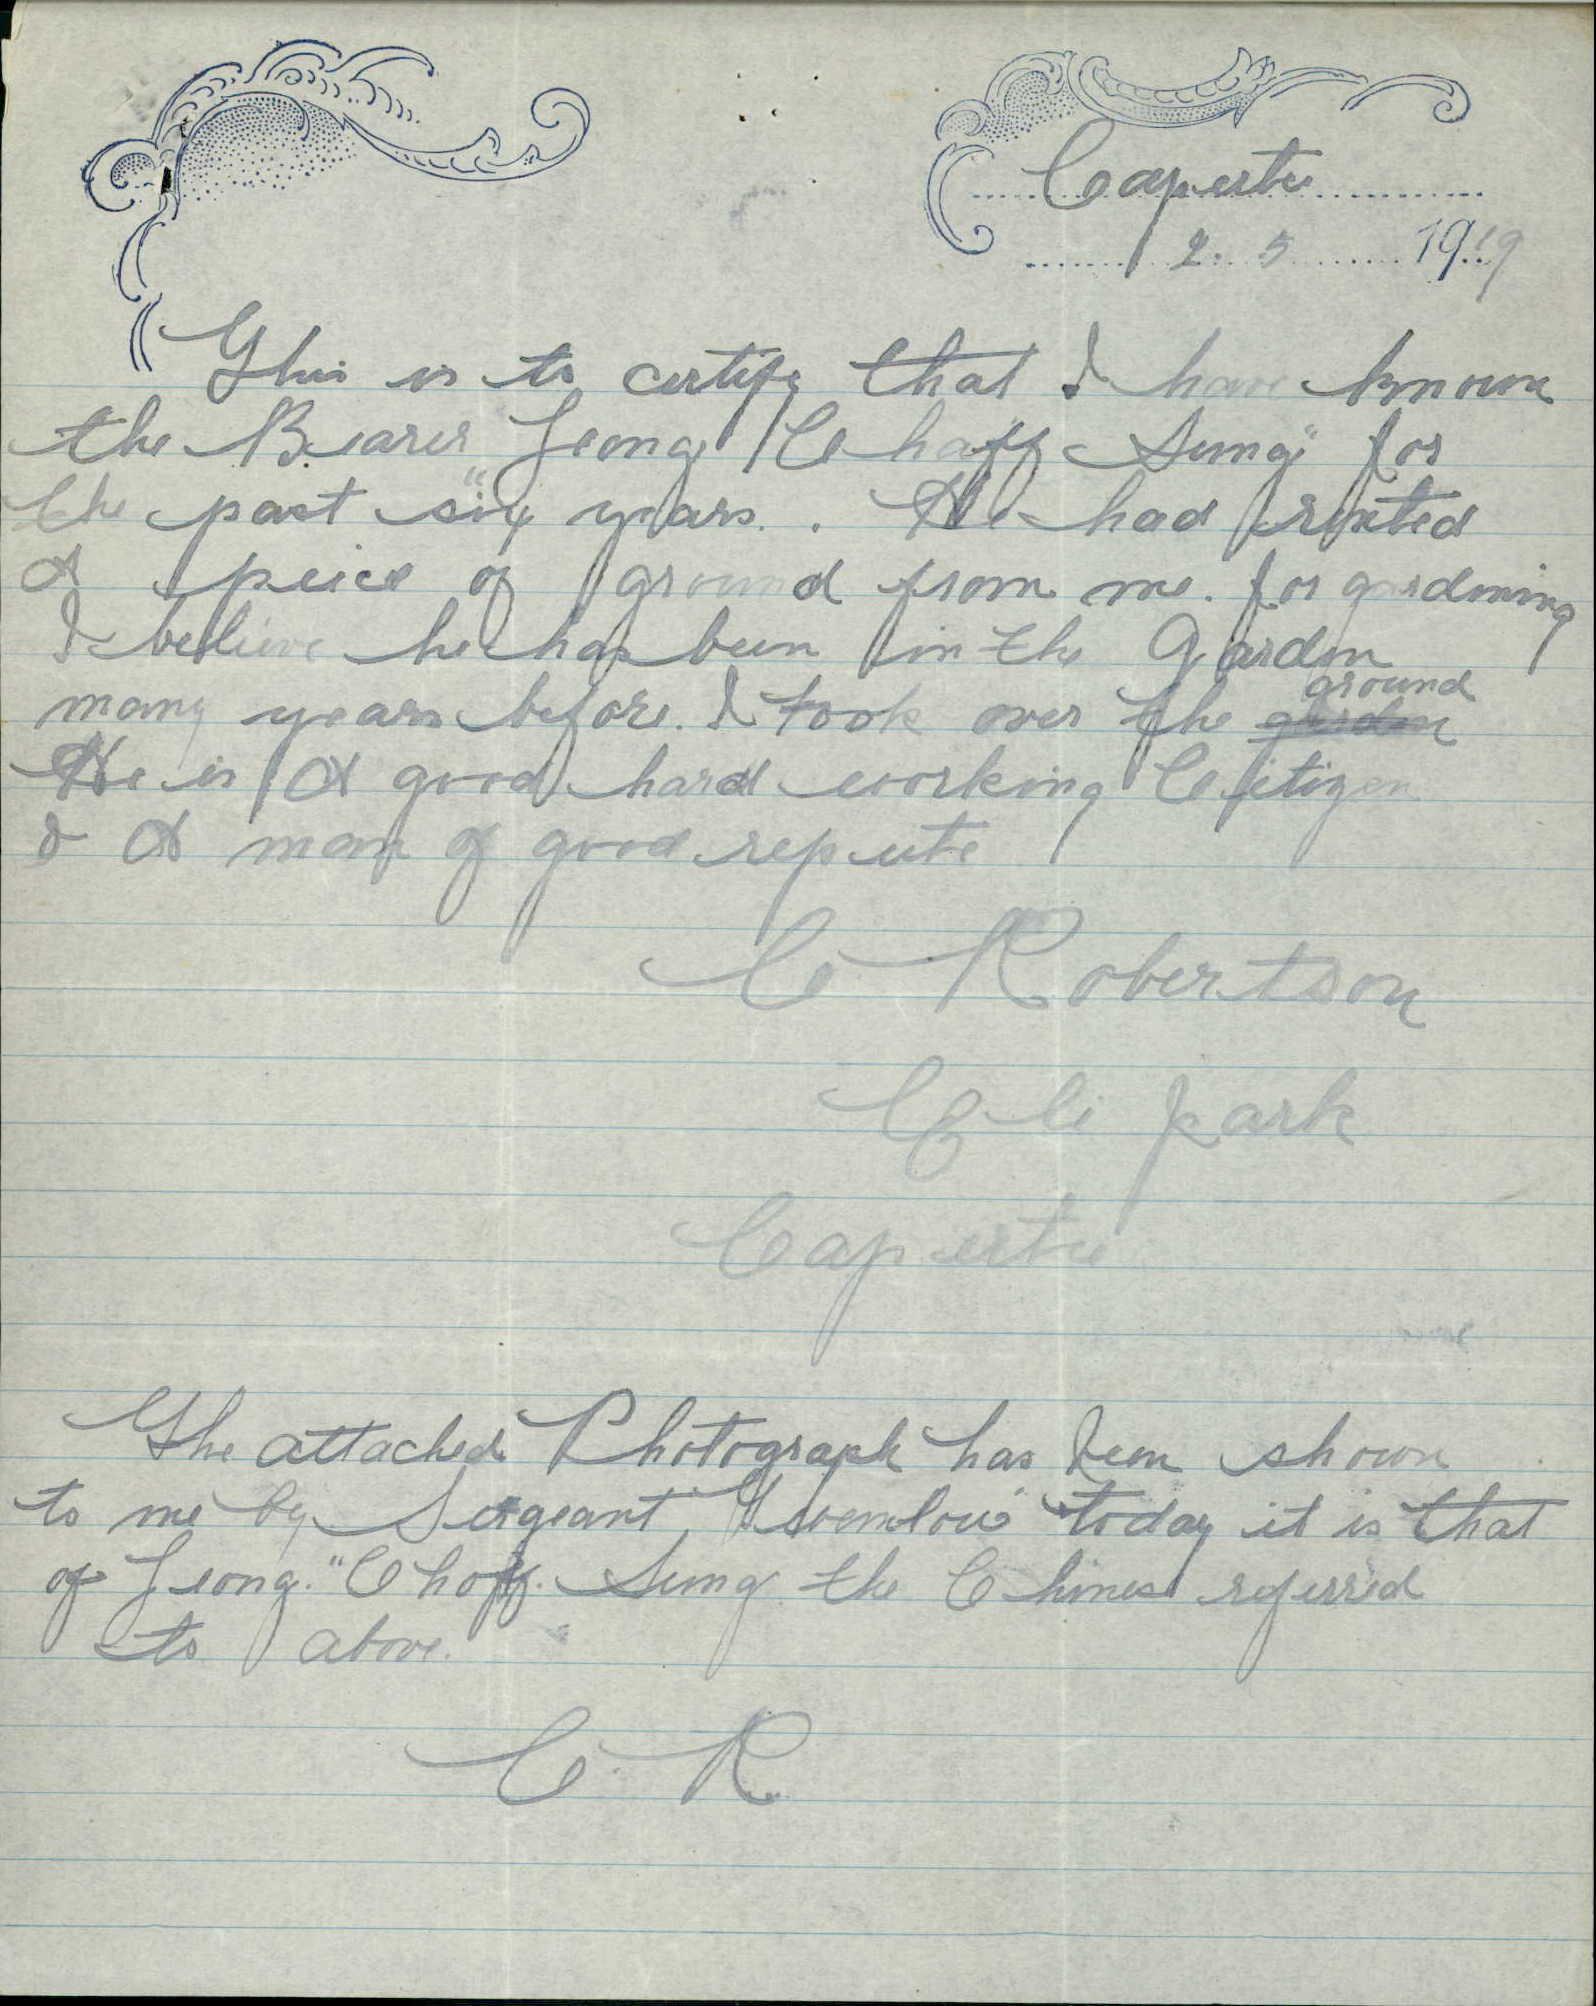 Capertee
2. 5 1919
This is to certify that I have known
the Bearer "Leong Chaff Sung" for
the past "six years. . He had rented
A peice of ground from me. for gardening
I believe he has been in the Garden
many years before. I took over the garden ground
He is A good hard working Citizen
& A man of good repute
C Robertson
park
Capertee
The attached Photograph has been shown
to me by Sergeant today it is that
of Leong. "Choff. Sung the Chinese referred
to above.
C. R.